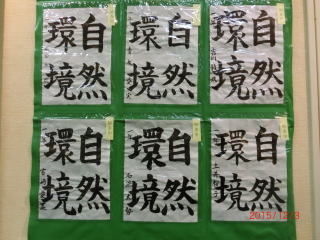 自然
環境
自然
環境
自然
環境
自然
環境
自然
環境
自然
環境
2015/12/3